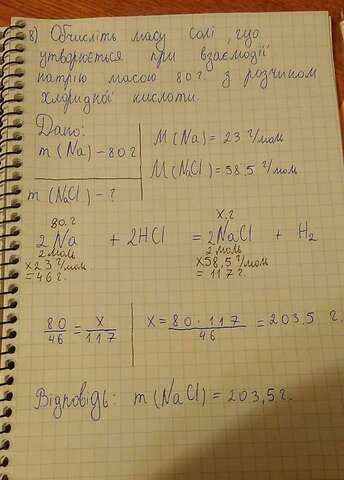 8) Обчисліть масу солі, що
утворюється при взаємодії
натрію масою 80 г. з розчином
хлоридної кислоти.
Дано:
m (Na) – 80 г
M (Na) = 23 г/моль
M (NaCl) = 58,5 г/моль
m (NaCl) – ?
80 г x г
2Na + 2HCl = 2NaCl + H₂
2 моль 2 моль
x23 г/моль x58,5 г/моль
= 46 г. = 117 г.
80/46 = x/117
x = 80 · 117/46 = 203,5 г.
Відповідь: m (NaCl) = 203,5 г.